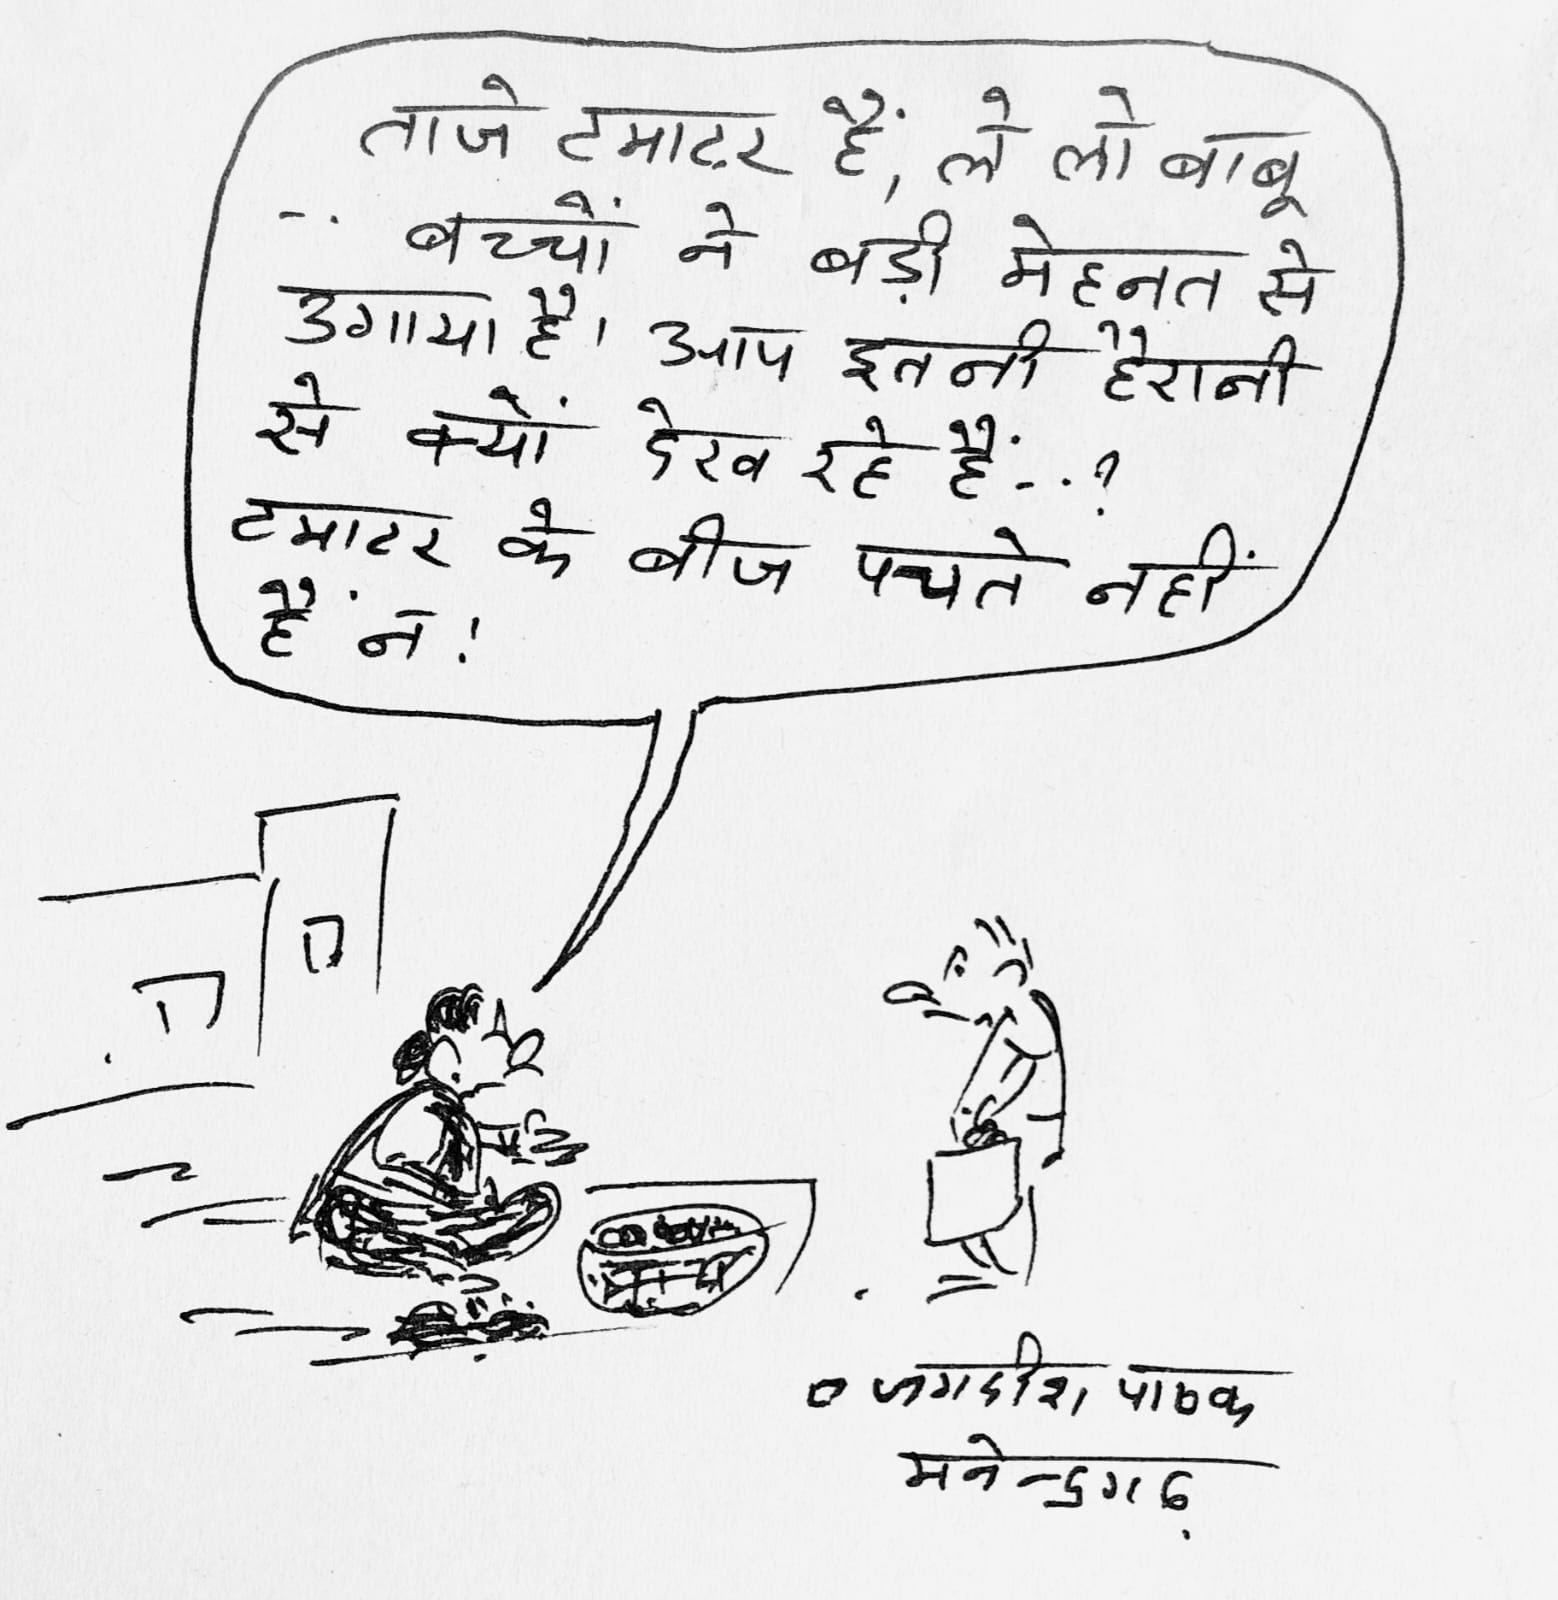 ताजे टमाटर हैं, ले लो बाबू
-.. बच्चों ने बड़ी मेहनत से
उगाया है। आप इतनी हैरानी
से क्यों देख रहे हैं-..?
टमाटर के बीज पचते नहीं
हैं न!
० जगदीश पाठक
मनेन्द्रगढ़